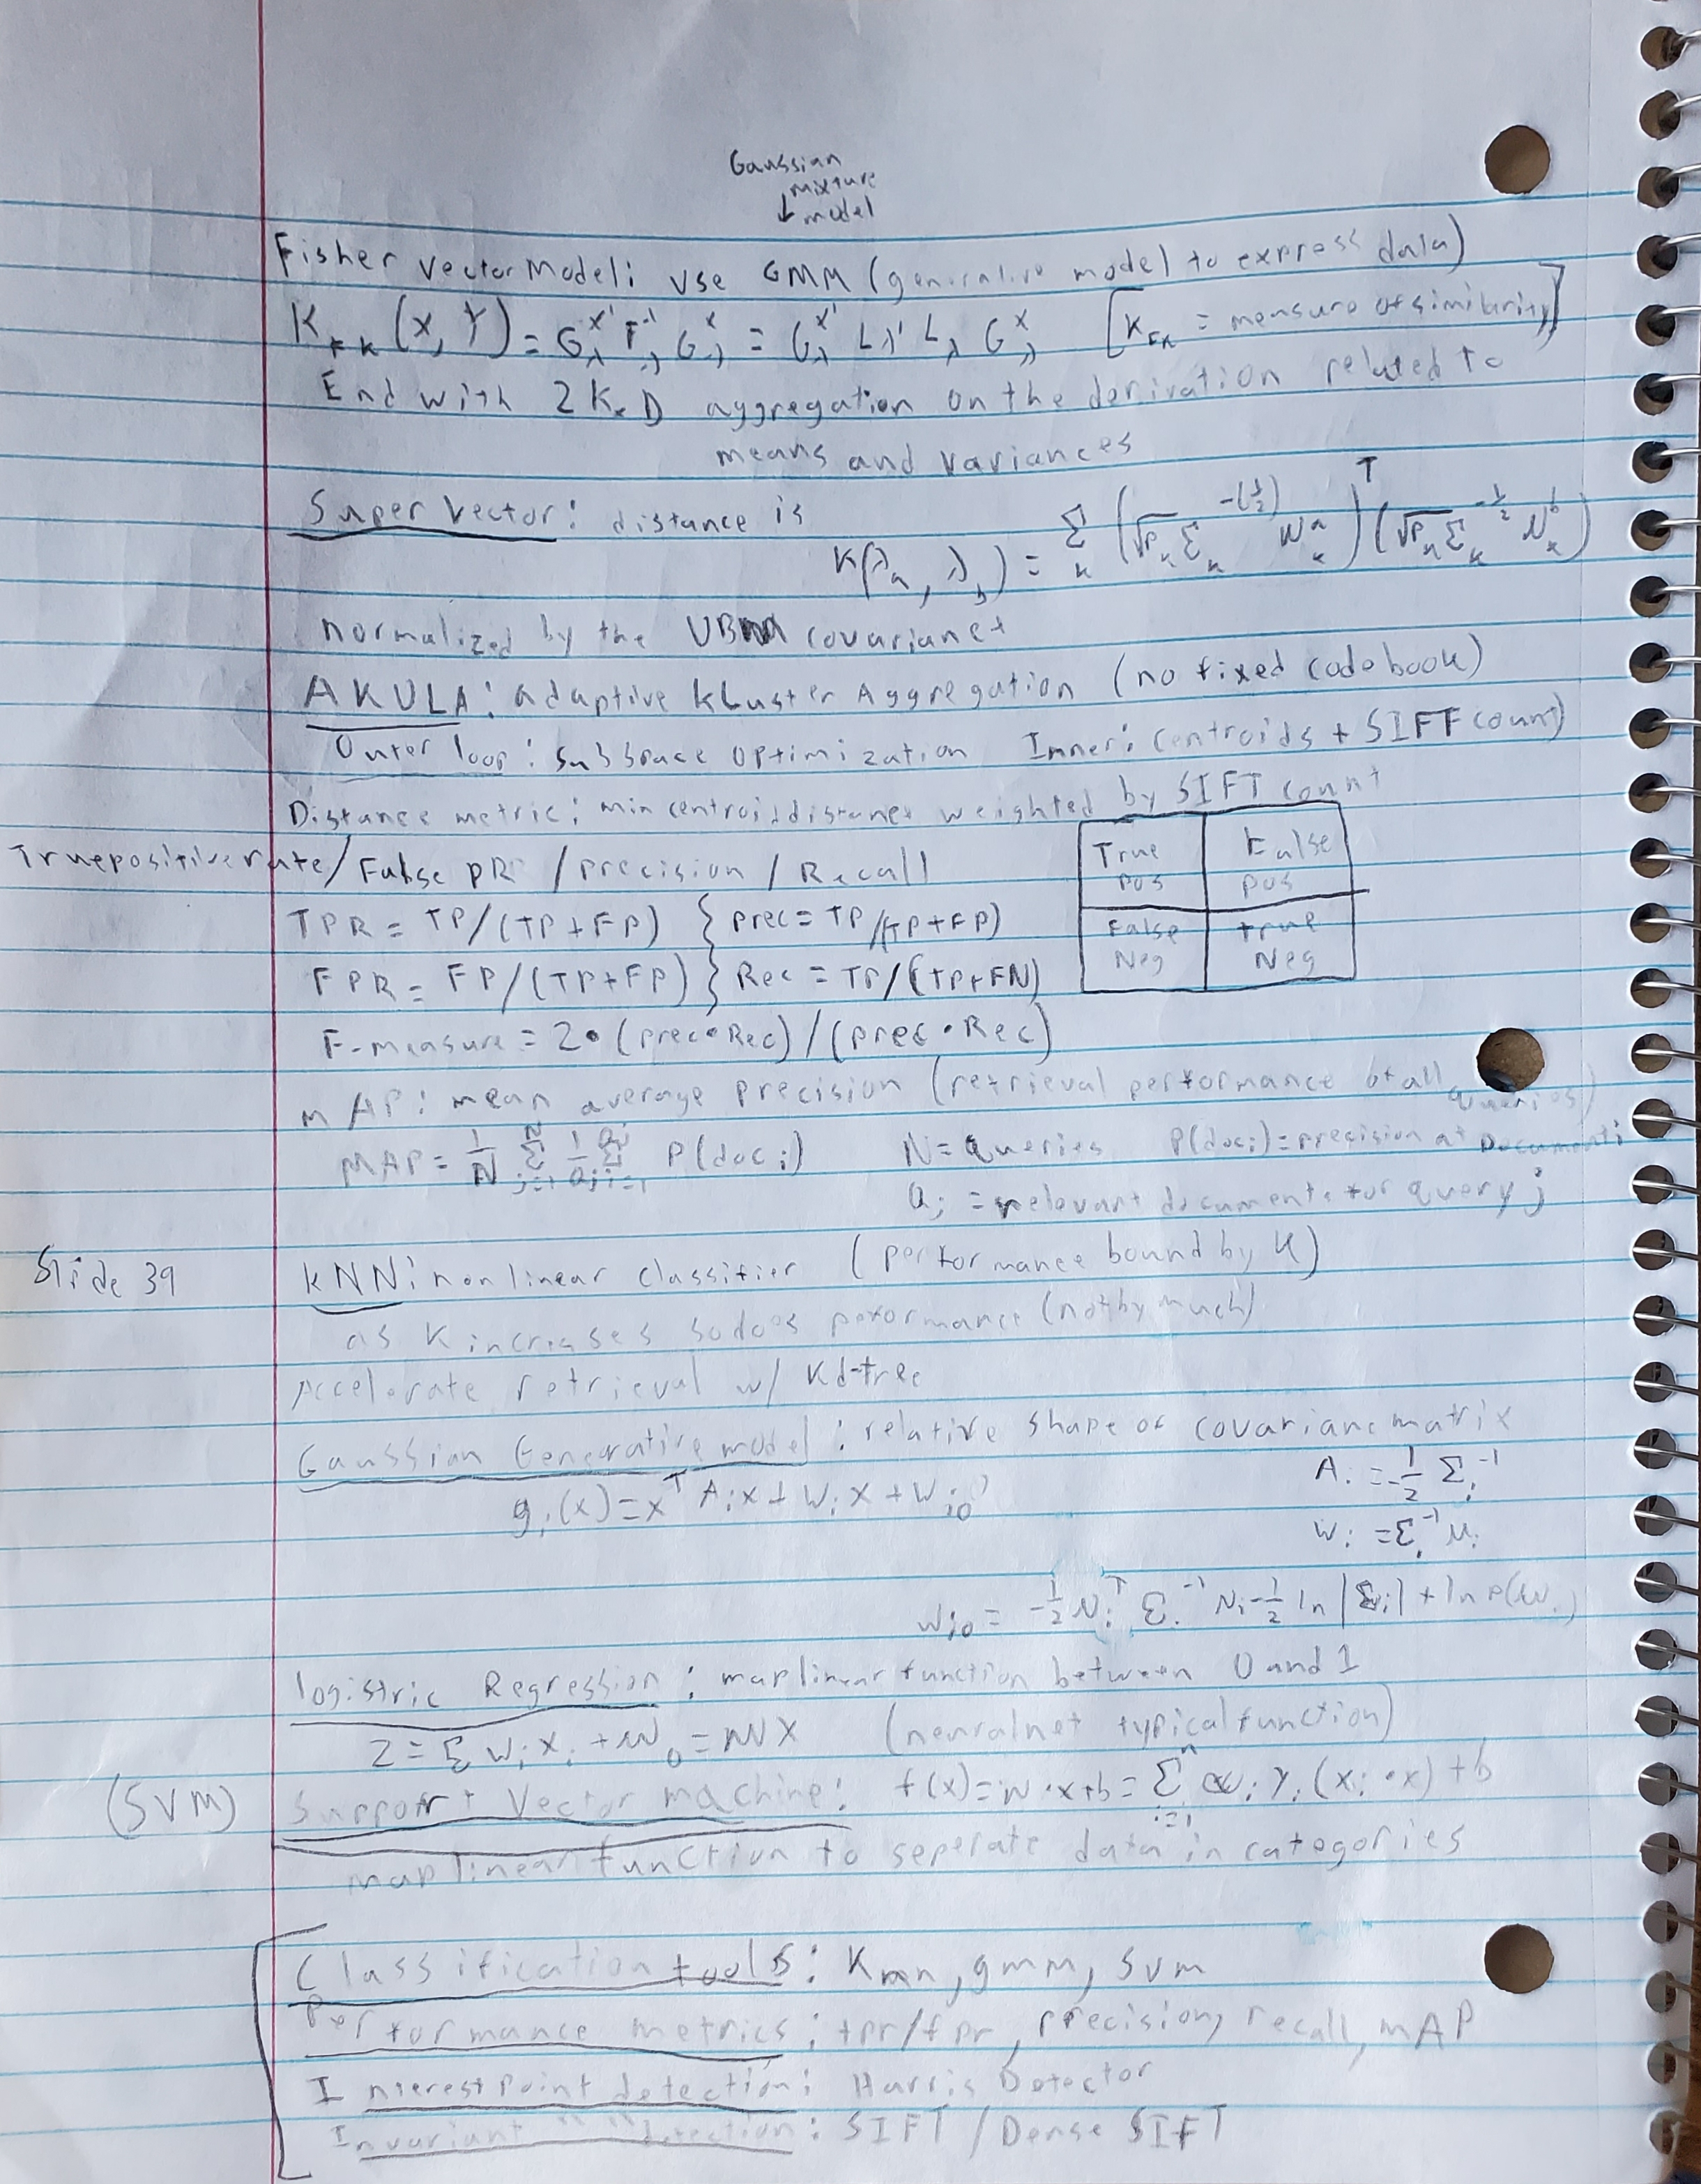 Gaussian
mixture
↓ model
Fisher Vector Model: Use GMM (generative model to express data)
K_FK (X, Y) = G_λ^X' F_λ^-1 G_λ^X = G_λ^X' L_λ' L_λ G_λ^X [K_FK = measure of similarity]
End with 2K×D aggregation on the derivation related to
means and variances
Super Vector: distance is
K(λ_a, λ_b) = Σ_k (√P_k Σ_k^-(1/2) μ_k^a)^T (√P_k Σ_k^-1/2 μ_k^b)
normalized by the UBM covariance
AKULA: adaptive kLuster Aggregation (no fixed codebook)
Outer loop: subspace optimization Inner: centroids + SIFT count)
Distance metric: min centroid distance weighted by SIFT count
True positive rate/False PR /precision / Recall
True Pos False Pos
TPR = TP/(TP+FP) } prec = TP/(TP+FP)
False Neg true Neg
FPR = FP/(TP+FP) } Rec = TP/(TP+FN)
F-measure = 2•(prec•Rec)/(prec•Rec)
mAP: mean average precision (retrieval performance of all queries)
MAP = 1/N Σ_{j=1}^N 1/Q_j Σ_{i=1}^{Q_j} P(doc_i) N = Queries P(doc_i) = precision at Document i
Q_j = relevant documents for query j
Slide 39 kNN: nonlinear classifier (performance bound by K)
as K increases so does performance (not by much)
Accelerate retrieval w/ Kd-tree
Gaussian Generative model: relative shape of covarianc matrix
g_i(x) = x^T A_i x + W_i x + W_i0
A_i = -1/2 Σ_i^-1
W_i = Σ_i^-1 μ_i
w_i0 = -1/2 μ_i^T Σ_i^-1 μ_i - 1/2 ln |Σ_i| + ln P(w_i)
logistric Regression: map linear function between 0 and 1
Z = Σ w_i x_i + w_0 = WX (neural net typical function)
(SVM) Support Vector machine: f(x) = w•x+b = Σ_{i=1}^n α_i y_i (x_i • x) + b
map linear function to seperate data in categories
Classification tools: Knn, gmm, svm
Performance metrics: tpr/fpr, precision, recall, mAP
Interest Point detection: Harris Detector
Invariant " " detection: SIFT / Dense SIFT